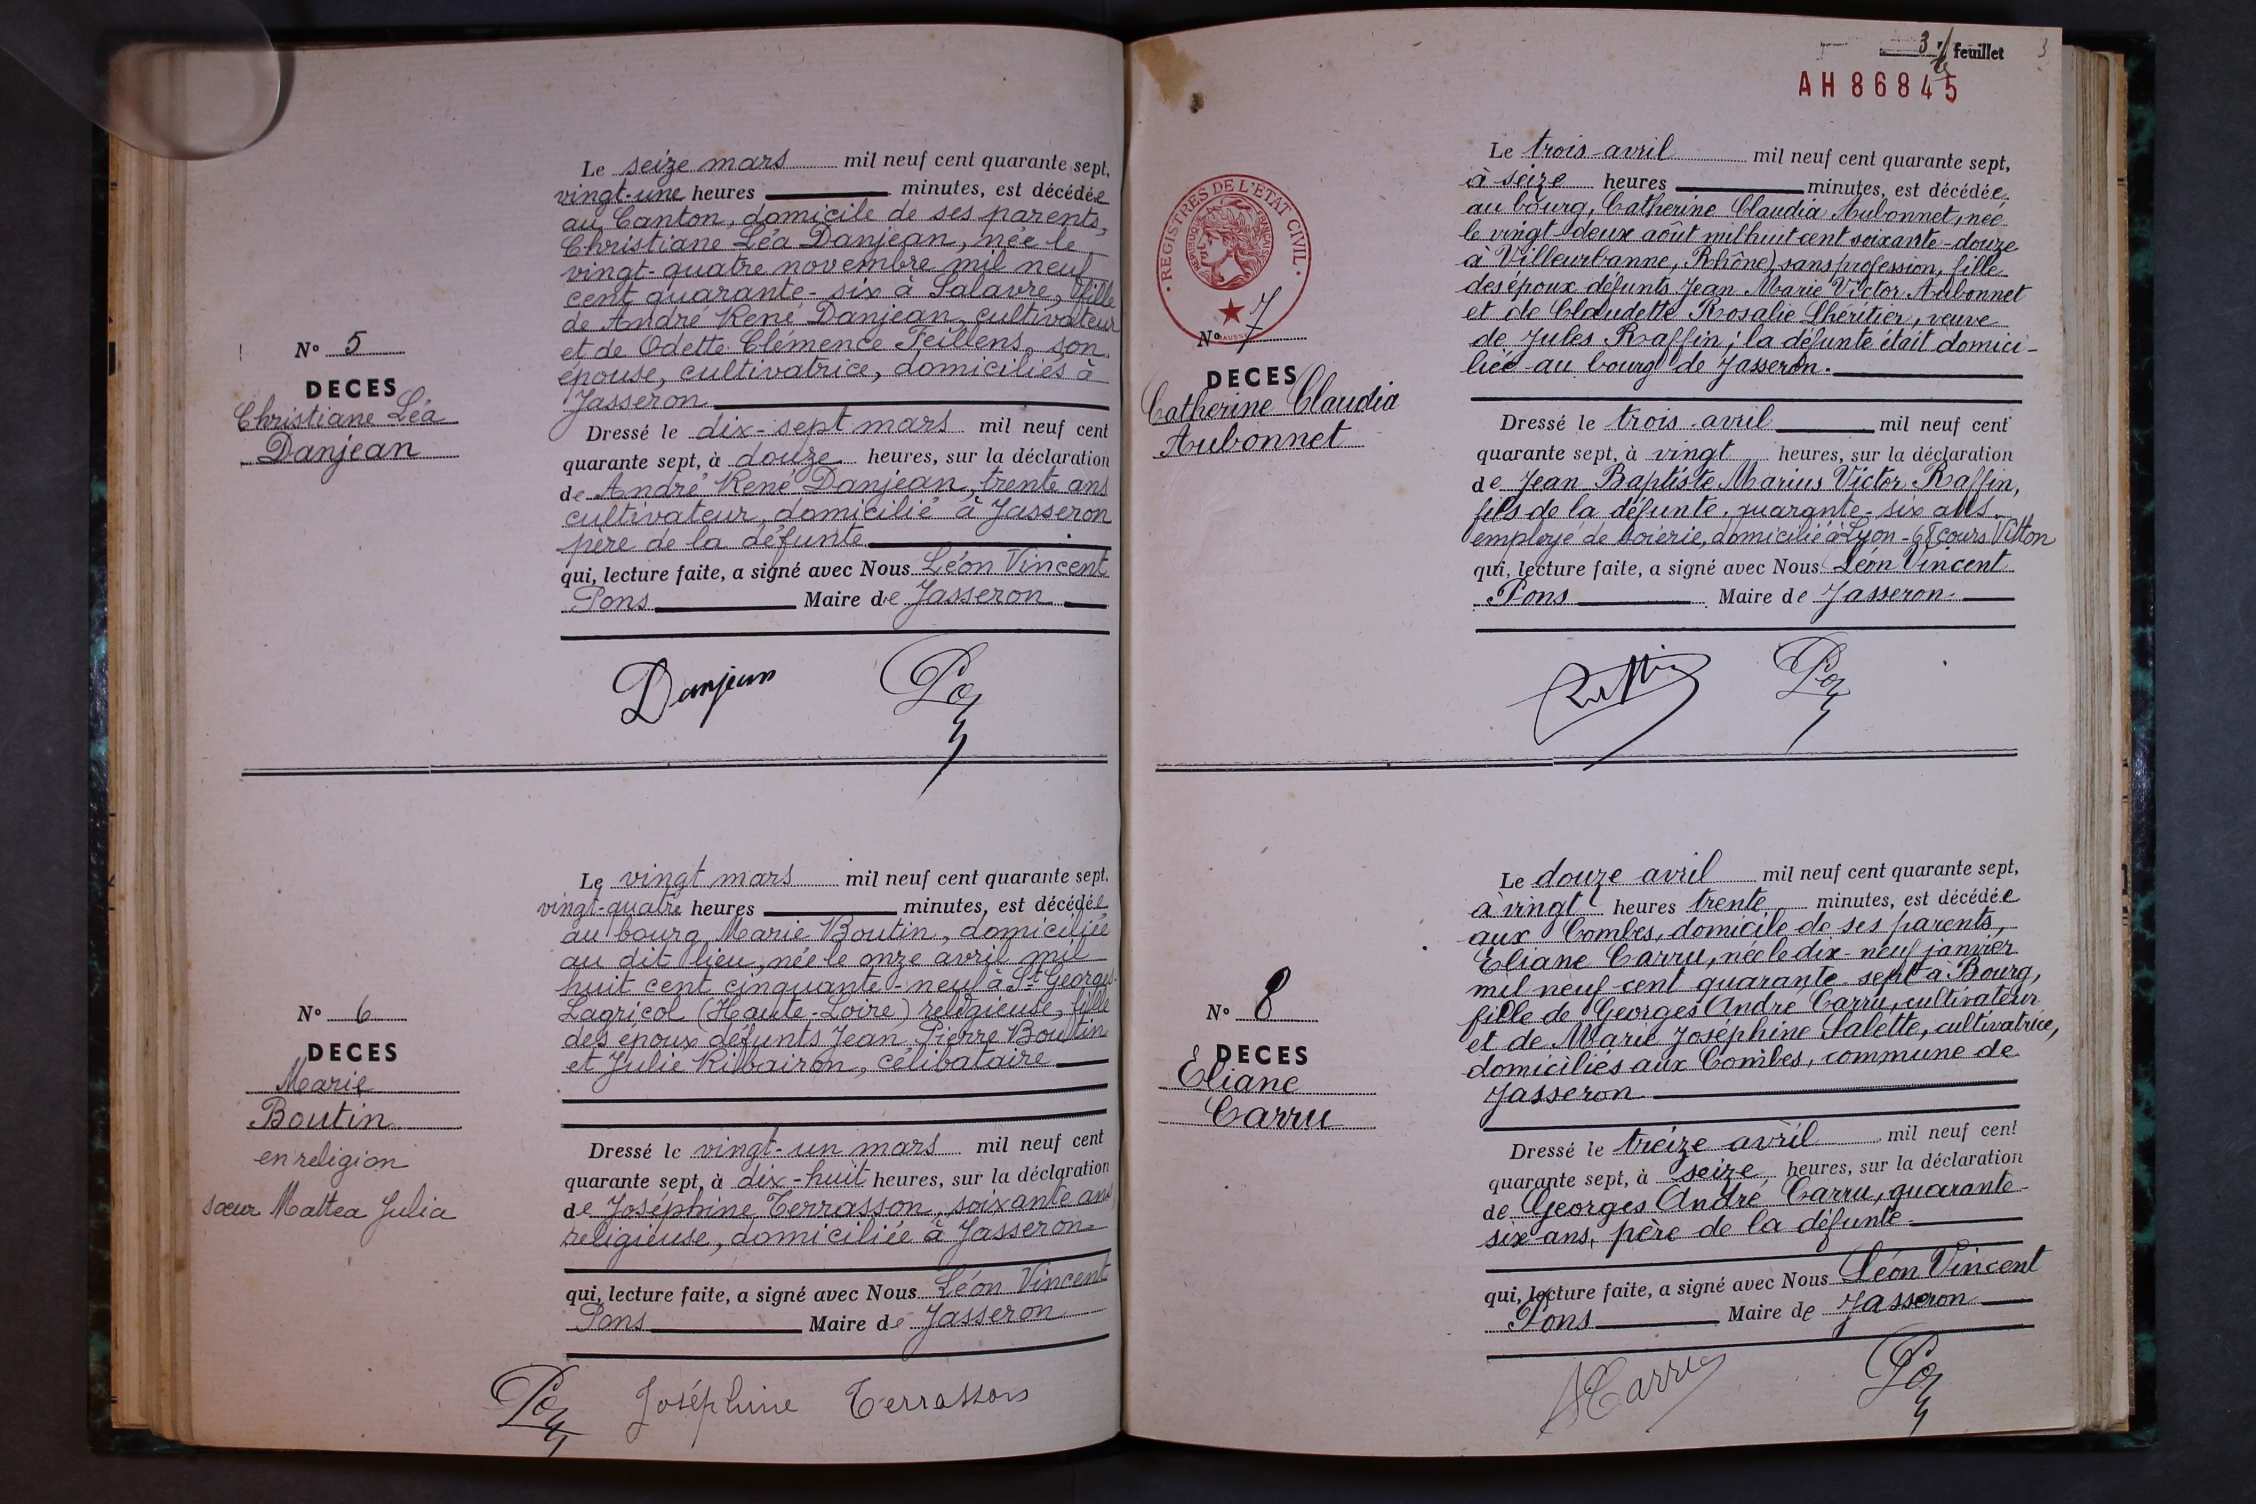 Le seize mars mil neuf cent quarante sept,
vingt-une heures minutes, est décédée
au Canton, domicile de ses parents,
Christiane Léa Danjean, née le
vingt-quatre novembre mil neuf
cent quarante-six à Salavre, fille
de André René Danjean, cultivateur
et de Odette Clémence Feillens, son
épouse, cultivatrice, domiciliés à
Jasseron
N° 5
DECES
Christiane Léa
Danjean
Dressé le dix-sept mars mil neuf cent
quarante sept, à douze heures, sur la déclaration
de André René Danjean, trente ans
cultivateur, domicilié à Jasseron
père de la défunte
qui, lecture faite, a signé avec Nous Léon Vincent
Pons Maire de Jasseron
Danjean
Le vingt mars mil neuf cent quarante sept,
vingt-quatre heures minutes, est décédée
au bourg Marie Boutin, domiciliée
au dit lieu, née le onze avril mil
huit cent cinquante-neuf à St Georges-
Lagricol (Haute-Loire) religieuse, fille
des époux défunts Jean Pierre Boutin
et Julie Ribairon, célibataire
N° 6
DECES
Marie
Boutin
en religion
sœur Mattea Julia
Dressé le vingt-un mars mil neuf cent
quarante sept, à dix-huit heures, sur la déclaration
de Joséphine Terrasson, soixante ans
religieuse, domiciliée à Jasseron
qui, lecture faite, a signé avec Nous Léon Vincent
Pons Maire de Jasseron
Joséphine Terrasson
3 feuillet
3
AH 86845
Le trois avril mil neuf cent quarante sept,
à seize heures minutes, est décédée
au bourg, Catherine Claudia Aubonnet, née
le vingt deux août mil huit cent soixante-douze
à Villeurbanne, Rhône) sans profession, fille
des époux défunts Jean Marie Victor Aubonnet
et de Claudette Rosalie Lhéritier, veuve
de Jules Raffin; la défunte était domici-
liée au bourg de Jasseron.
REGISTRES DE L'ETAT CIVIL
REPUBLIQUE FRANÇAISE
N° 7
DECES
Catherine Claudia
Aubonnet
Dressé le trois avril mil neuf cent
quarante sept, à vingt heures, sur la déclaration
de Jean Baptiste Marius Victor Raffin,
fils de la défunte, quarante-six ans
employé de soierie, domicilié à Lyon-68 cours Vitton
qui, lecture faite, a signé avec Nous Léon Vincent
Pons Maire de Jasseron
Le douze avril mil neuf cent quarante sept,
à vingt heures trente minutes, est décédée
aux Combes, domicile de ses parents,
Eliane Carru, née le dix-neuf janvier
mil neuf cent quarante sept à Bourg,
fille de Georges André Carru, cultivateur
et de Marie Joséphine Salette, cultivatrice,
domiciliés aux Combes, commune de
Jasseron
N° 8
DECES
Eliane
Carru
Dressé le treize avril mil neuf cent
quarante sept, à seize heures, sur la déclaration
de Georges André Carru, quarante
six ans, père de la défunte
qui, lecture faite, a signé avec Nous Léon Vincent
Pons Maire de Jasseron